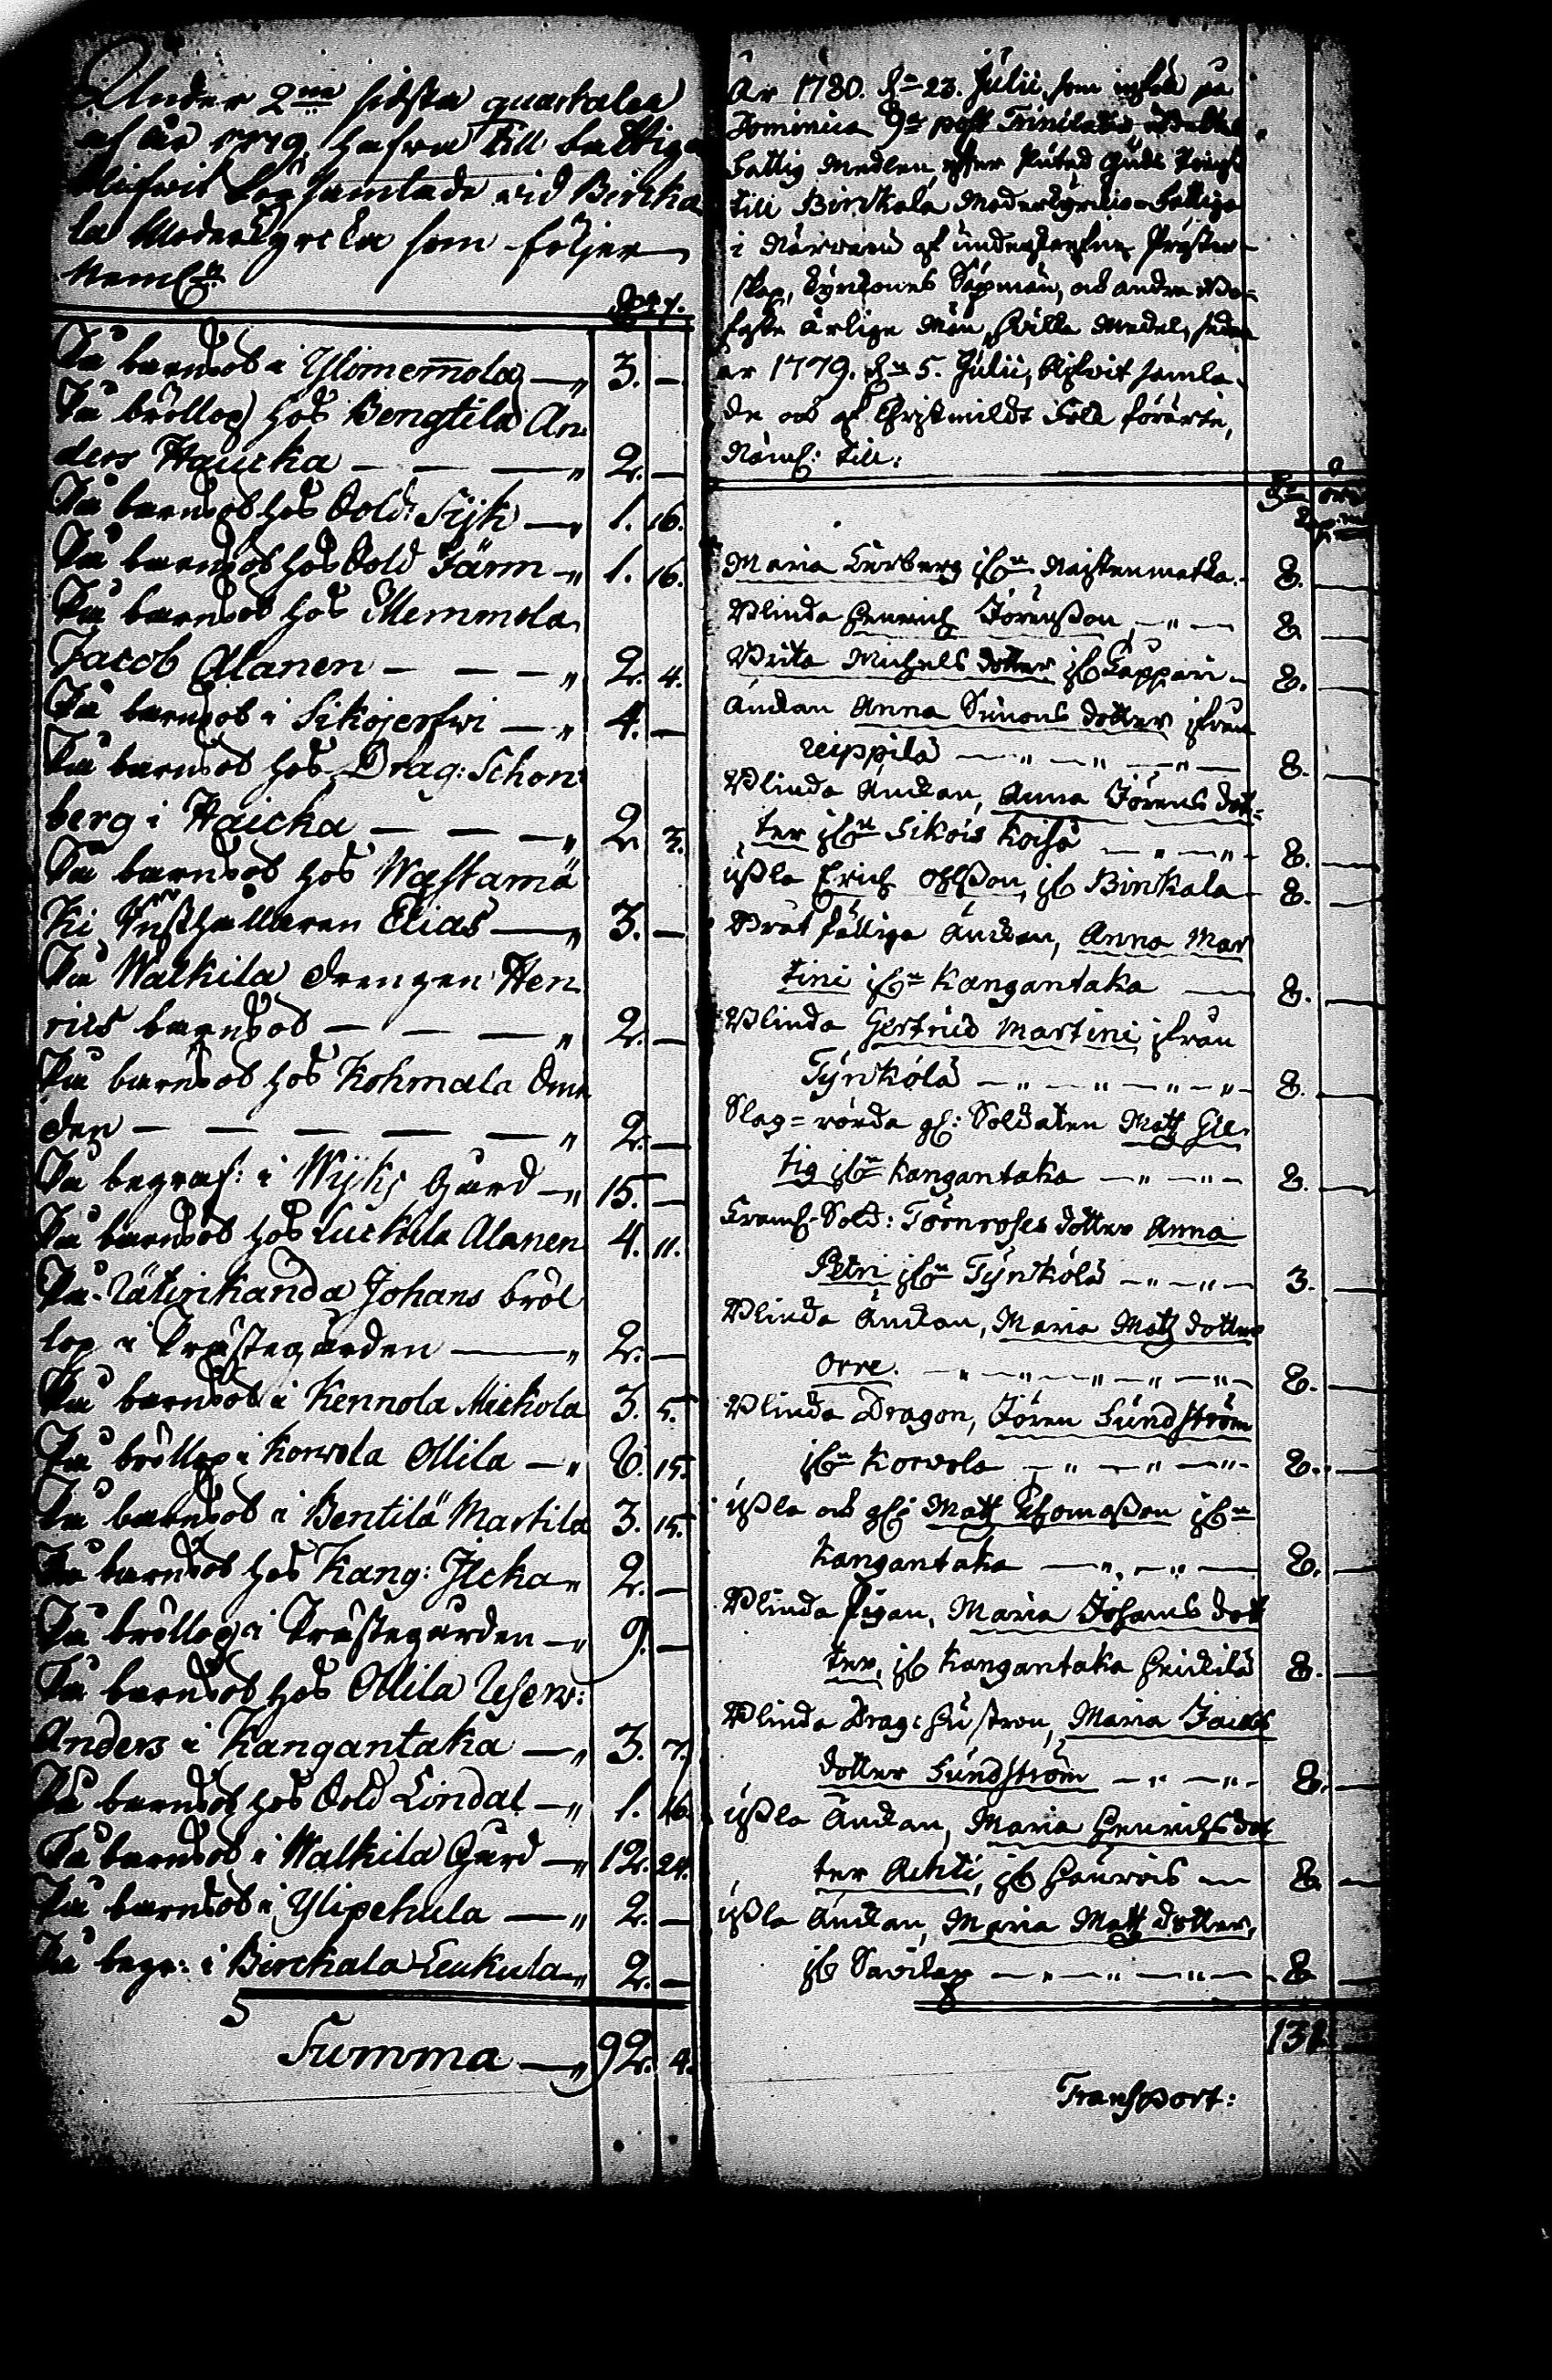 Under 2ne sidsta quartalen
af år 1779 hafva till Fattiga
blifvit Samlade vid Birka
la Moderkyrcka som följer
Neml:n
På barnsöl i Ylönemola —" 3. —
På bröllop hos Bengtilä An
ders Haucka — — —" 2. —
På barnsöl hos Sold: Sijk —" 1. 16.
På barnsöl hos Sold Järm —" 1. 16.
På barnsöl hos Memmola
Jacob Alanen — — —" 2. 4.
På barnsöl i Sikojerfwi —" 4. —
På barnsöl hos Drag: Schon
berg i Haicka — — —" 2. 3.
På barnsöl hos Wastamä
ki Elias —" 3. —
På Walkila drengen Hen
rics barnsöl — — —" 2. —
På barnsöl hos Kohmala
den — — — — —" 2. —
På begraf: i Wijks Gård —" 15. —
På barnsöl hos Luckila Alanen 4. 11.
På Lätinkanda Johans bröl
lop i Prästegården —" 2. —
På barnsöl i Kennola Mickola 3. 5.
På bröllop i Korvola Ollila —" 8. 15.
På barnsöl i Bentilä Martila 3. 15.
På barnsöl hos Kang: Ilcka " 2. —
På bröllop i Prästegården —" 9. —
På barnsöl hos Ollila Reserv:
Anders i Kangantaka —" 3. 7.
På barnsöl hos Sold Lindal —" 1. 16.
På barnsöl i Walkila Gård —" 12. 24.
På barnsöl i Ylipehula —" 2. —
På begr: i Birckala Leukula " 2. —
Summa —" 92. 4.
År 1780. d:n 23. Julii, som inföll på
Dominica 9:na post Trinitatis utdeltes
Fattig Medlen, efter slutad Guds tienst
till Birkala Moderkyrkio-Fattige
i närwaro af underskrefne Präster-
skap, Kyrkones Sexmän, och andra Bo-
faste ärlige Män, hwilka Medel, sedan
år 1779. d:n 5. Julii, blifvit samla-
de och af Christmildt Folk förärte,
Näml: till:
Maria Kerberg ifr:n Naistenmatka. 8. —
Blinda Henrich Jörensson —"— 8. —
Brita Michels dotter ifr Kappari — 8. —
Änkan Anna Simons dotter ifrån
Reippilä —"—"—"— 8. —
Blinda Änkan, Anna Jörens dot=
ter ifr:n Sikois Koiso —"—"— 8. —
usla Erich Ohlsson, ifr Birkala — 8. —
Bråtfällige Änkan, Anna Mar
tini ifr:n Kangantaka — 8. —
Blinda Gertrud Martini ifrån
Tynkölä —"—"—"—"— 8. —
Slag=rörda gl: Soldaten Matz Gil
tig ifr:n Kangantaka —"—"— 8. —
Sold: Törnroses dotter Anna
Petri ifr:n Tynkölä —"—"— 3. —
Blinda Änkan, Maria Matz dotter
Orre. —"—"—"—"—"— 8. —
Blinda Dragon, Jören Sundström
ifr:n Korvola —"—"—"— 8. —
usla och gl: Matz Thomasson ifr:n
Kangantaka —"—"— 8. —
Blinda Pigan, Maria Johans dot
ter, ifr Kangantaka Heickilä 8. —
Blinda Drag: hustron, Maria Jacobs
dotter Sundström —"—"— 8. —
usla Änkan, Maria Henrichs dot
ter Achti, ifr Haurois — 8. —
usla Änkan, Maria Matz dotter,
ifr Savilax —"—"—"— 8. —
131
Transport: